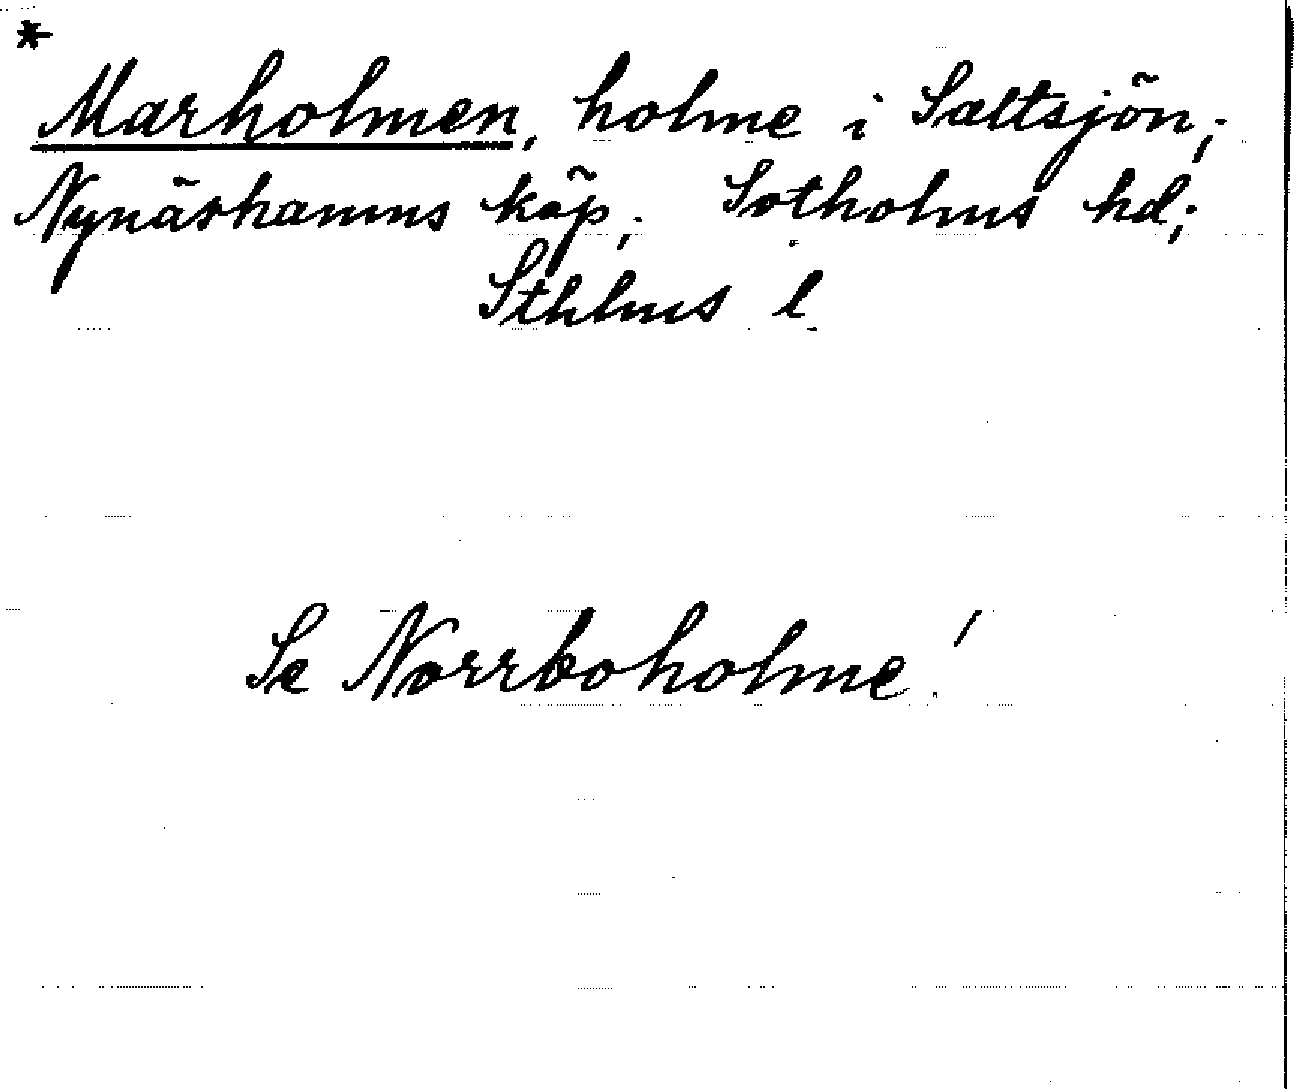 *
Marholmen, holme i Saltsjön;
Nynäshamns köp; Sotholms hd;
Sthlms l
Se Norrboholme!